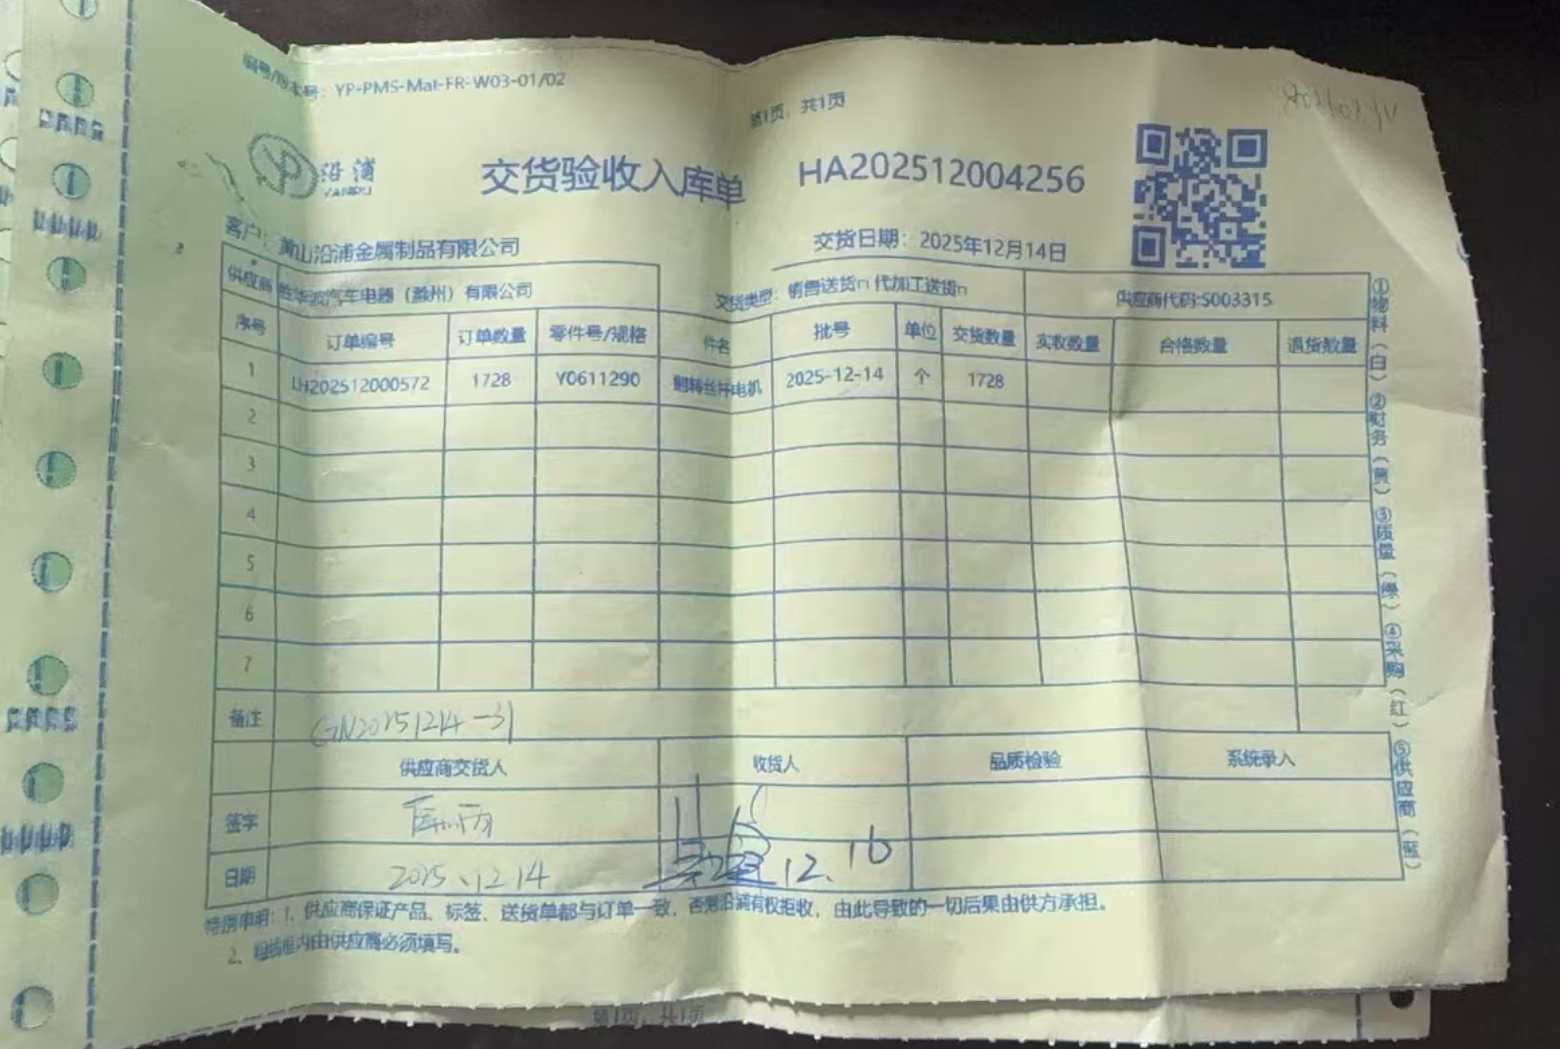 编号/版本号：YP-PMS-Mat-FR-W03-01/02
第1页，共1页
沿浦
YANPU
交货验收入库单
HA202512004256
客户：黄山沿浦金属制品有限公司
交货日期：2025年12月14日
供应商 胜华波汽车电器（滁州）有限公司 交货类型：销售送货n 代加工送货n 供应商代码:S003315
序号 订单编号 订单数量 零件号/规格 件名 批号 单位 交货数量 实收数量 合格数量 退货数量
1 LH202512000572 1728 Y0611290 翻转丝杆电机 2025-12-14 个 1728
2
3
4
5
6
7
备注 GN20251214-31
供应商交货人 收货人 品质检验 系统录入
签字
日期 2025.12.14 12.16
特别申明：1、供应商保证产品、标签、送货单都与订单一致，否则沿浦有权拒收，由此导致的一切后果由供方承担。
2、粗线框内由供应商必须填写。
①物料（白）②财务（黄）③质量（绿）④采购（红）⑤供应商（蓝）
第1页，共1页